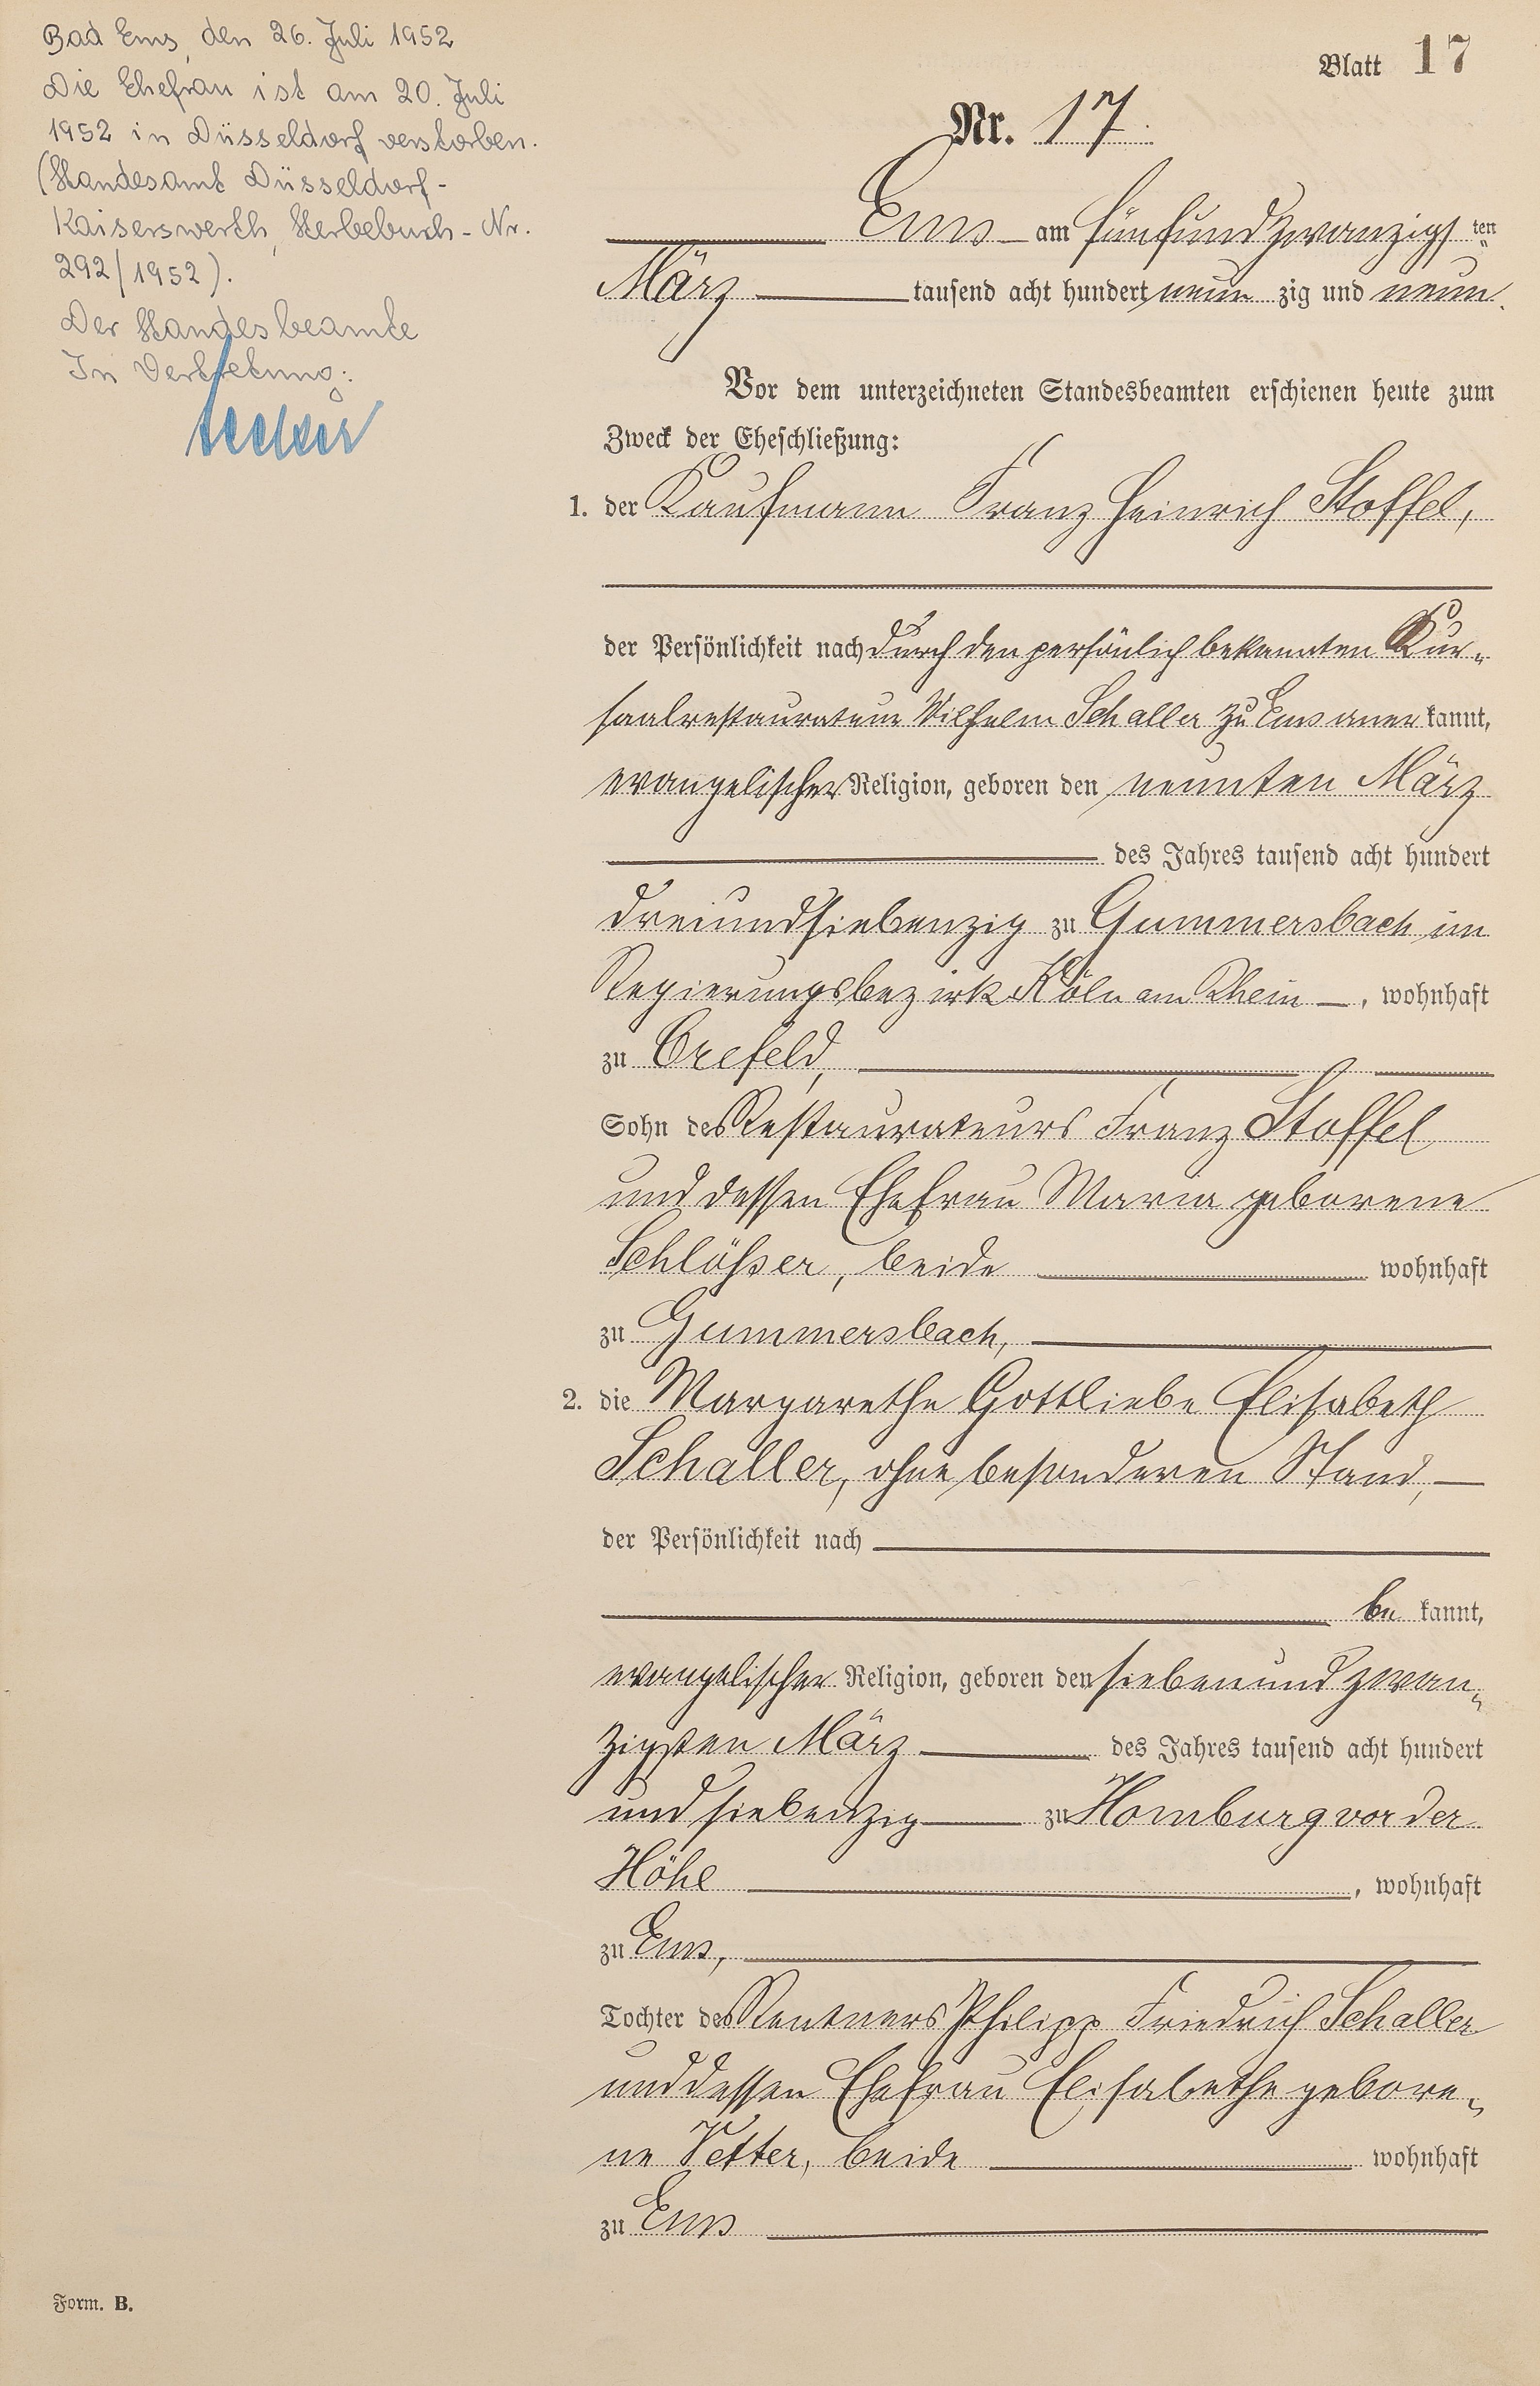 Bad Ems, den 26. Juli 1952
Die Ehefrau ist am 20. Juli
1952 in Düsseldorf verstorben.
(Standesamt Düsseldorf-
Kaiserswerth, Sterbebuch-Nr.
292/1952).
Der Standesbeamte
In Vertretung:
Blatt 17
Nr. 17.
Ems am fünfundzwanzigsten
März tausend acht hundert neunzig und neun.
Vor dem unterzeichneten Standesbeamten erschienen heute zum
Zweck der Eheschließung:
1. der Kaufmann Franz Heinrich Stoffel,
der Persönlichkeit nach durch den persönlich bekannten Kur-
saalrestaurateur Wilhelm Schaller zu Ems anerkannt,
evangelischer Religion, geboren den neunten März
des Jahres tausend acht hundert
dreiundsiebenzig zu Gummersbach im
Regierungsbezirk Köln am Rhein, wohnhaft
zu Crefeld,
Sohn des Restaurateurs Franz Stoffel
und dessen Ehefrau Maria geborene
Schlößer, beide wohnhaft
zu Gummersbach,
2. die Margarethe Gottliebe Elisabeth
Schaller, ohne besonderen Stand,
der Persönlichkeit nach
bekannt,
evangelischer Religion, geboren den siebenundzwan-
zigsten März des Jahres tausend acht hundert
und siebenzig zu Homburg vor der
Höhe, wohnhaft
zu Ems,
Tochter des Rentners Philipp Friedrich Schaller
und dessen Ehefrau Elisabethe gebore-
ne Vetter, beide wohnhaft
zu Ems
Form. B.